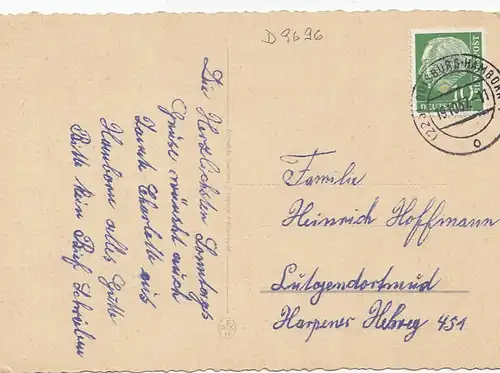 D 9696
Die Herzlichsten Sonntags
Grüße wünscht euch
Tante Charlotte aus
Hamborn alles Gute
Bitte kein Brief Schreiben
POST
10
DUISBURG-HAMBORN
Familie
Heinrich Hoffmann
Lütgendortmud
Harpener Helweg 451